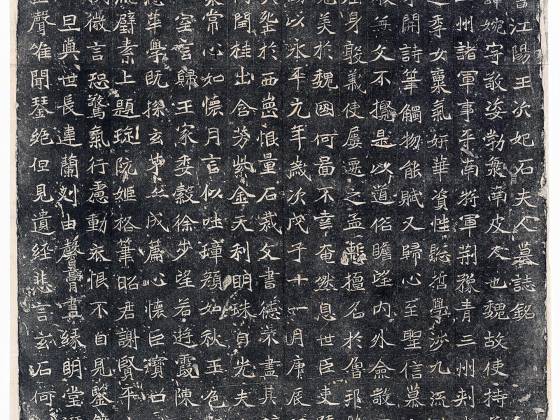 江陽王次妃石夫人墓誌銘
諱婉字敬姿勃海南皮人也魏故使持
州諸軍事平南將軍荊豫青三州刺
之季女稟氣妍華資性聰哲學涉九流
關詩筆觸物能賦又歸心至聖信慕
無文不攬是以道俗瞻望內外僉敬
身躬義使屢遜之孟懸擅名於魯邦
美於魏國何啚不言奄然息世臣吏
以永平元年歲次戊子十一月庚辰
兆於西崗恨量石裁文書德菜盡其
桂出含芳紫金天利明珠自光夫
常心如懷月言似吐璋顏如秋玉色
室言歸王家委縠徐步望若遊霞陳
華學既探玄才亦成篇心懷巨寶口
璧素上題琬阮姬格筆昭君謝賢平
微言恐驚氣行慮動恨不自見鑒
旦與世長違蘭刈由馨膏盡緣明堂
聲唯聞琴絕但見遺經悲言玄石何